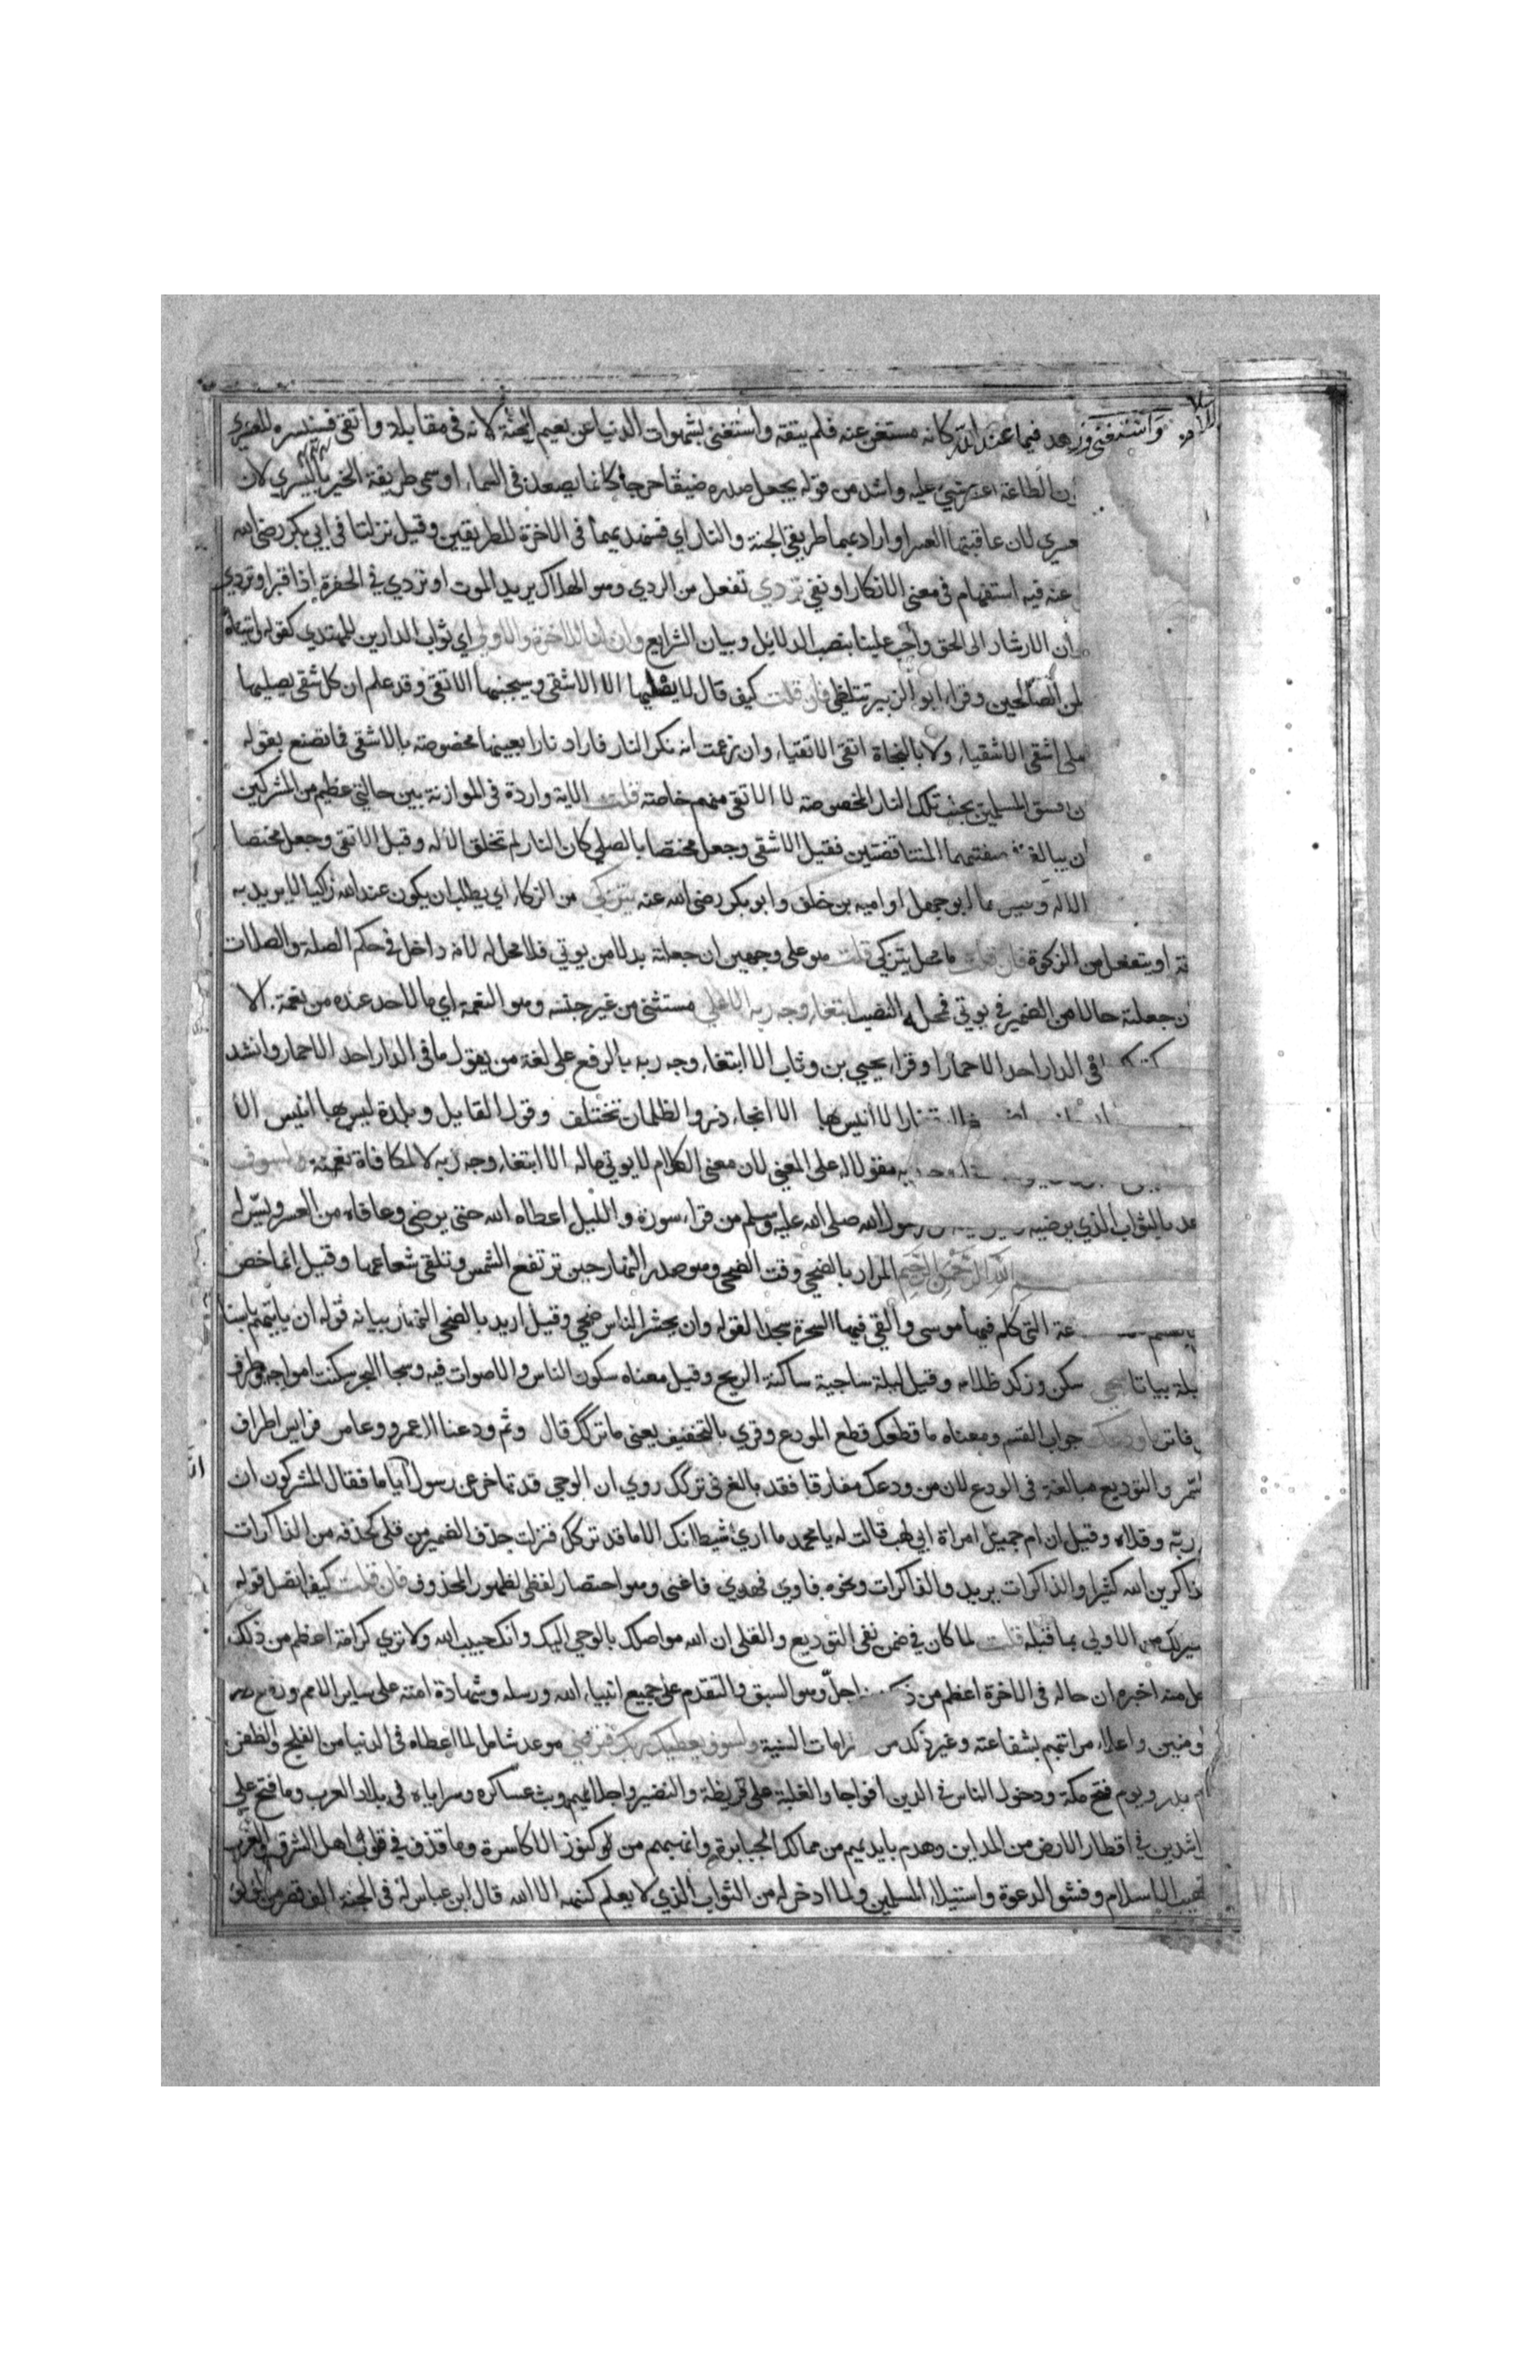 واستغنى وزهد فيما عند الله كانه مستغن عنه فلم يتقه واستغنى بشهوات الدنيا عن نعيم الجنة لانه في مقابلة واتقى فسنيسره للعسرى
الطاعة اعسر شيء عليه واشد من قوله يجعل صدره ضيقا حرجا كانما يصعد في السماء او سمى طريقة الخير باليسري لان
لان عاقبتها العسر او اراد بهما طريقي الجنة والنار اي فسنهديهما في الاخرة للطريقين وقيل نزلتا في ابي بكر رضي الله
عنه فيه استفهام في معنى الانكار او نفي تردي تفعل من الردي وهو الهلاك يريد الموت او تردي في الحفرة اذا قبر او تردي
ان الارشاد الى الحق واجب علينا بنصب الدلايل وبيان الشرايع وان لنا للاخرة والاولى اي ثواب الدارين للمهتدي كقوله واتيناه
لمن الصالحين وقراء ابو الزبير تتلظى فان قلت كيف قال لا يصليها الا الاشقى وسيجنبها الاتقى وقد علم ان كل شقي يصليها
اشقى الاشقياء ولا بالنجاة اتقى الاتقياء وان زعمت انه نكر النار فاراد نارا بعينها مخصوصة بالاشقى فما تصنع بقوله
فسق المسلمين يجنب تلك النار المخصوصة لا الاتقى منهم خاصة قلت الاية واردة في الموازنة بين حالتي عظيم من المشركين
ان يبالغ صفتيهما المتناقضتين فقيل الاشقى وجعل مختصا بالصلي كان النار لم تخلق الا له وقيل الاتقى وجعل مختصا
الا له وقيل هما ابو جهل او اميه بن خلف وابو بكر رضي الله عنه يتزكى من الزكاء اي يطلب ان يكون عند الله زاكيا لا يريد به
او يتفعل من الزكوة فان قلت ما محل يتزكى قلت هو على وجهين ان جعلته بدلا من يوتي فلا محل له لانه داخل في حكم الصلة والصلات
جعلته حالا من الضمير في يوتي فمحله النصب ابتغاء وجه ربه الاعلى مستثنى من غير جنسه وهو النعمة اي ما لاحد عنده من نعمة الا
في الدار احد الا حمارا وقراء يحيى بن وثاب الا ابتغاء وجه ربه بالرفع على لغة من يقول ما في الدار احد الا حمار وانشد
لا انيس بها الا الجاء ذر والظلمان تختلف وقول القايل وبلدة ليس بها انيس الا
مفعولا له على المعنى لان معنى الكلام لا يوتي ماله الا ابتغاء وجه ربه لا لمكافاة نعمة ولسوف
بالثواب الذي يرضيه رسول الله صلى الله عليه وسلم من قراء سورة والليل اعطاه الله حتى يرضى وعافاه من العسر ويسر له
بسم الله الرحمن الرحيم المراد بالضحى وقت الضحى وهو صدر النهار حين ترتفع الشمس وتلقى شعاعها وقيل انما خص
التي كلم فيها موسى والقي فيها السحرة سجدا لقوله وان يحشر الناس ضحى وقيل اريد بالضحى النهار بيانه قوله ان ياتيهم باسنا
بياتا سجى سكن وركد ظلامه وقيل ليلة ساجية ساكنة الريح وقيل معناه سكون الناس والاصوات فيه وسجا البحر سكنت امواجه وطرف
ما ودعك جواب القسم ومعناه ما قطعك قطع المودع وقري بالتخفيف يعني ما تركك قال وثم ودعنا ال عمرو وعامر فرايس اطراف
والتوديع مبالغة في الودع لان من ودعك مفارقا فقد بالغ في تركك روي ان الوحي قد تاخر عن رسول اياما فقال المشركون ان
ربه وقلاه وقيل ان ام جميل امراة ابي لهب قالت له يا محمد ما ارى شيطانك الا ما قد تركك فنزلت حذف الضمير من قلى كحذفه من الذاكرات
ذاكرين الله كثيرا والذاكرات يريد والذاكراته ونحوه فاوي فهدى فاغنى وهو اختصار لفظي لظهور المحذوف فان قلت كيف اتصل قوله
من الاولى بما قبله قلت لما كان في ضمن نفي التوديع والقلى ان الله مواصلك بالوحي اليك وانك حبيب الله ولا ترى كرامة اعظم من ذلك
منه اخبره ان حاله في الاخرة اعظم من ذلك واجل وهو السبق والتقدم على جميع انبياء الله ورسله وشهادة امته على ساير الامم ورفع
واعلاء مراتبهم بشفاعته وغير ذلك من السنية ولسوف يعطيك ربك فترضى موعد شامل لما اعطاه في الدنيا من الفلج والظفر
بدر ويوم فتح مكة ودخول الناس في الدين افواجا والغلبة على قريظة والنضير واجلائهم وبث عساكره وسراياه في بلاد العرب وما فتح على
في اقطار الارض من المداين وهدم بايديهم من ممالك الجبابرة وانهبهم من كنوز الاكاسرة وما قذف في قلوب اهل الشرق والغرب
الاسلام وفشو الدعوة واستيلاء المسلمين ولما ادخر له من الثواب الذي لا يعلم كنهه الا الله قال ابن عباس له في الجنة الف قصر من لولو